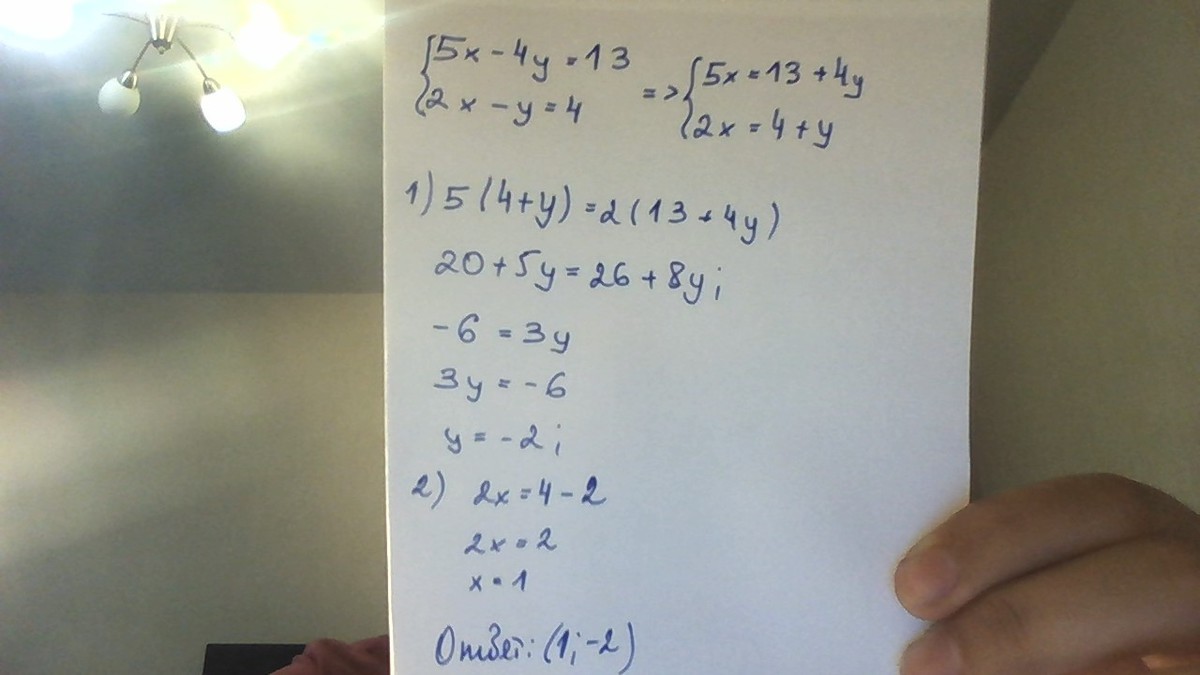 {5x - 4y = 13
{2x - y = 4
=> {5x = 13 + 4y
{2x = 4 + y
1) 5(4+y) = 2(13 + 4y)
20 + 5y = 26 + 8y;
-6 = 3y
3y = -6
y = -2;
2) 2x = 4 - 2
2x = 2
x = 1
Ответ: (1; -2)